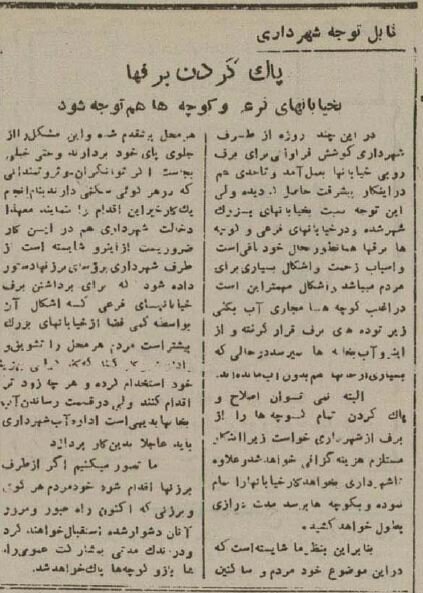 قابل توجه شهرداری
پاك کردن برفها
بخیابانهای فرعی و کوچه ها هم توجه شود
در این چند روزه از طرف
شهرداری کوشش فراوانی برای برف
روبی خیابانها بعمل آمد و تاحدی هم
در اینکار پیشرفت حاصل گردیده ولی
این توجه نسبت بخیابانهای بزرك
شهر شده و در خیابانهای فرعی و کوچه
ها برفها همانطور بحال خود باقی است
و اسباب زحمت و اشکال بسیاری برای
مردم میباشد و اشکال مهمتر این است
در اغلب کوچه ها مجاری آب یکلی
زیر توده های برف قرار گرفته و از
اینرو آب بخانه ها نمیرسد در حالی که
بسیاری از خانها هم بدون آب مانده اند.
البته نمی توان اصلاح و
پاك کردن تمام کوچه ها را از
برف از شهرداری خواست زیرا اینکار
مستلزم هزینه گزافی خواهد شد و علاوه
تا شهرداری بخواهد کار خیابانها را تمام
نموده و بکوچه ها برسد مدت درازی
بطول خواهد کشید.
بنابراین بنظر ما شایسته است که
در این موضوع خود مردم و ساکنین
هر محل پیشقدم شده و این مشکل را از
جلوی پای خود بردارند و حتی خیلی
بجاست اگر توانگران و ثروتمندانی
که در هر کوئی سکنی دارند بنام انجم
یك کار خیر این اقدام را بنمایند معهذا
دخالت شهرداری هم در این کار
ضروریست از اینرو شایسته است از
طرف شهرداری برؤسای برزنها دستور
داده شود که برای برداشتن برف
خیابانهای فرعی که اشکال آن
بواسطه کمی فضا از خیابانهای بزرك
بیشتر است مردم هر محل را تشویق و
خود استخدام کرده و هر چه زود تر
اقدام کنند ولی در قسمت رساندن آب
بخانها بدیهی است اداره آب شهرداری
باید عاجلا بدین کار پردازد
ما تصور میکنیم اگر از طرف
برزنها اقدام شود خود مردم هر کوی
و برزنی که اکنون راه عبور و مرور
آنان دشوار شده استقبال خواهند کرد
و در اندك مدتی بمشارکت عمومی راه
ها و کوچه ها پاك خواهد شد.